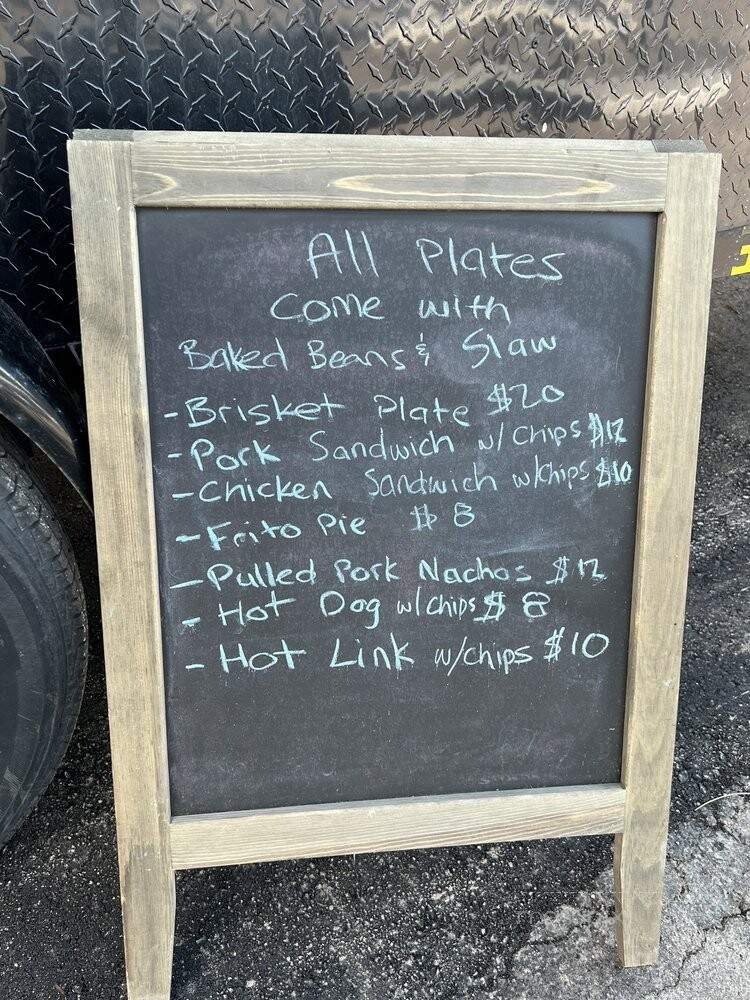 All Plates
Come with
Baked Beans & Slaw
- Brisket Plate $20
- Pork Sandwich w/ Chips $12
- Chicken Sandwich w/chips $10
- Frito Pie $8
- Pulled Pork Nachos $12
- Hot Dog w/chips $8
- Hot Link w/chips $10